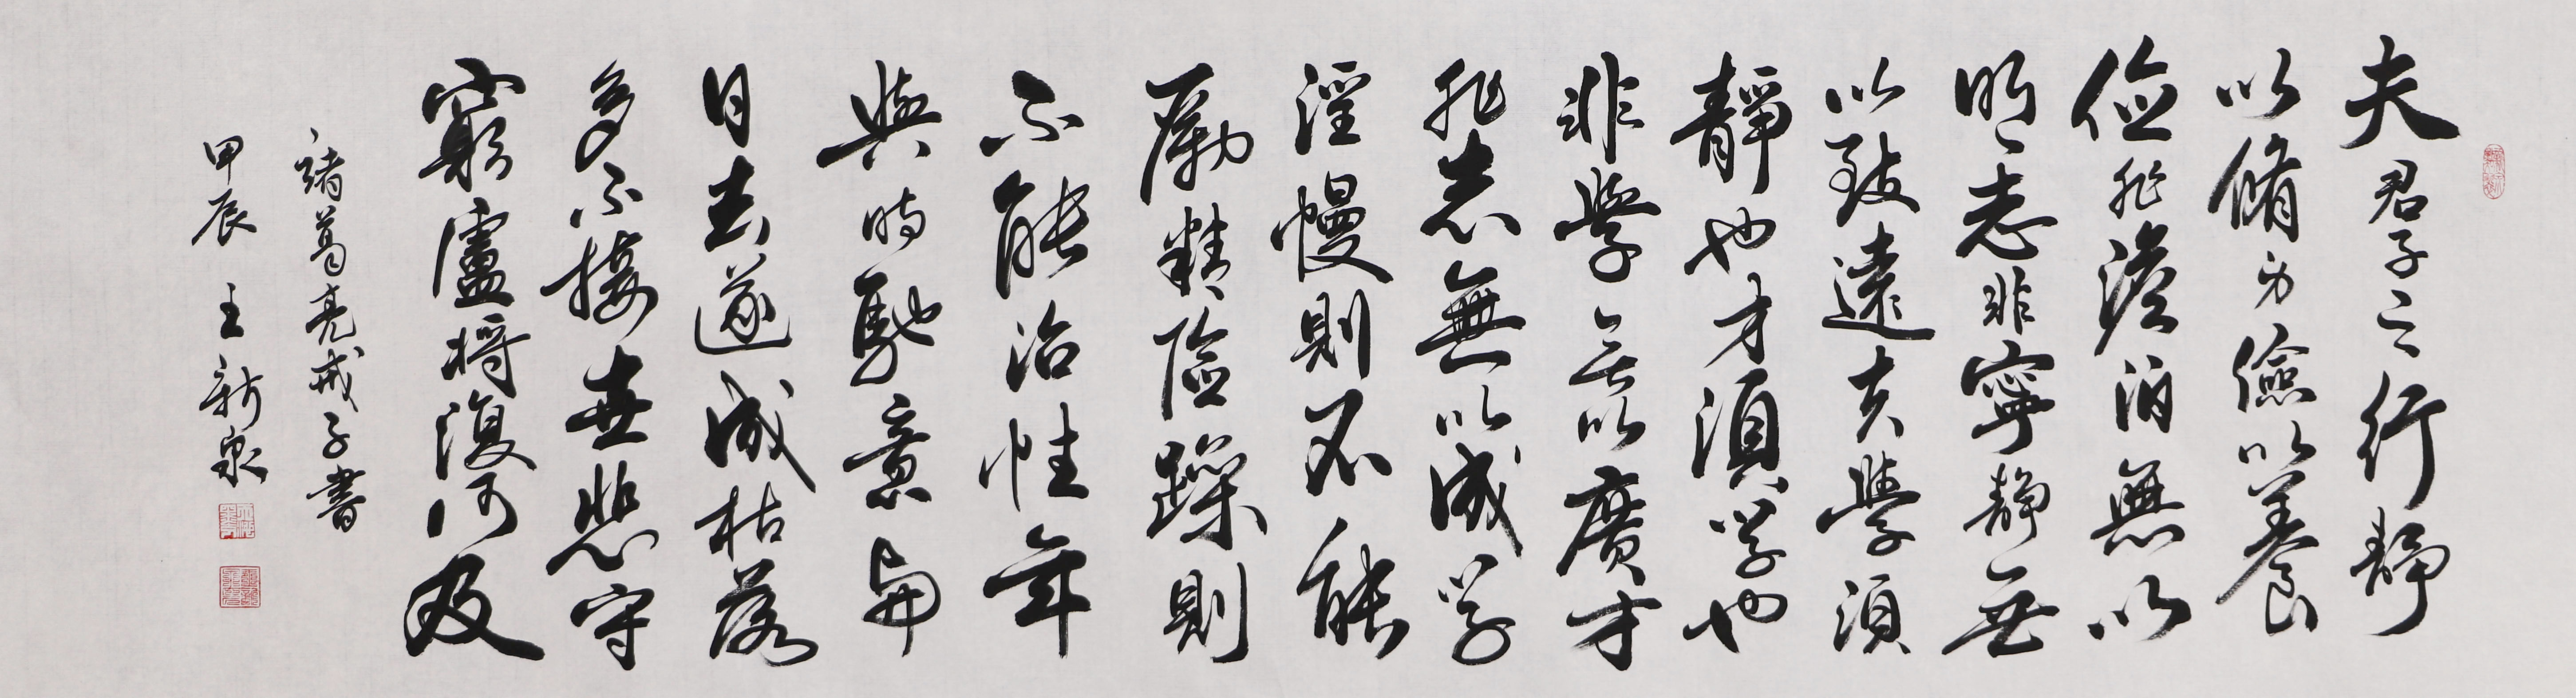 夫君子之行静
以脩身儉以養
德非澹泊無以
明志非寧静無
以致遠夫學須
靜也才須学也
非學无以廣才
非志無以成学
淫慢則不能
勵精險躁則
不能治性年
與時馳意與
日去遂成枯落
多不接世悲守
窮廬將復何及
諸葛亮戒子書
甲辰 王新泉